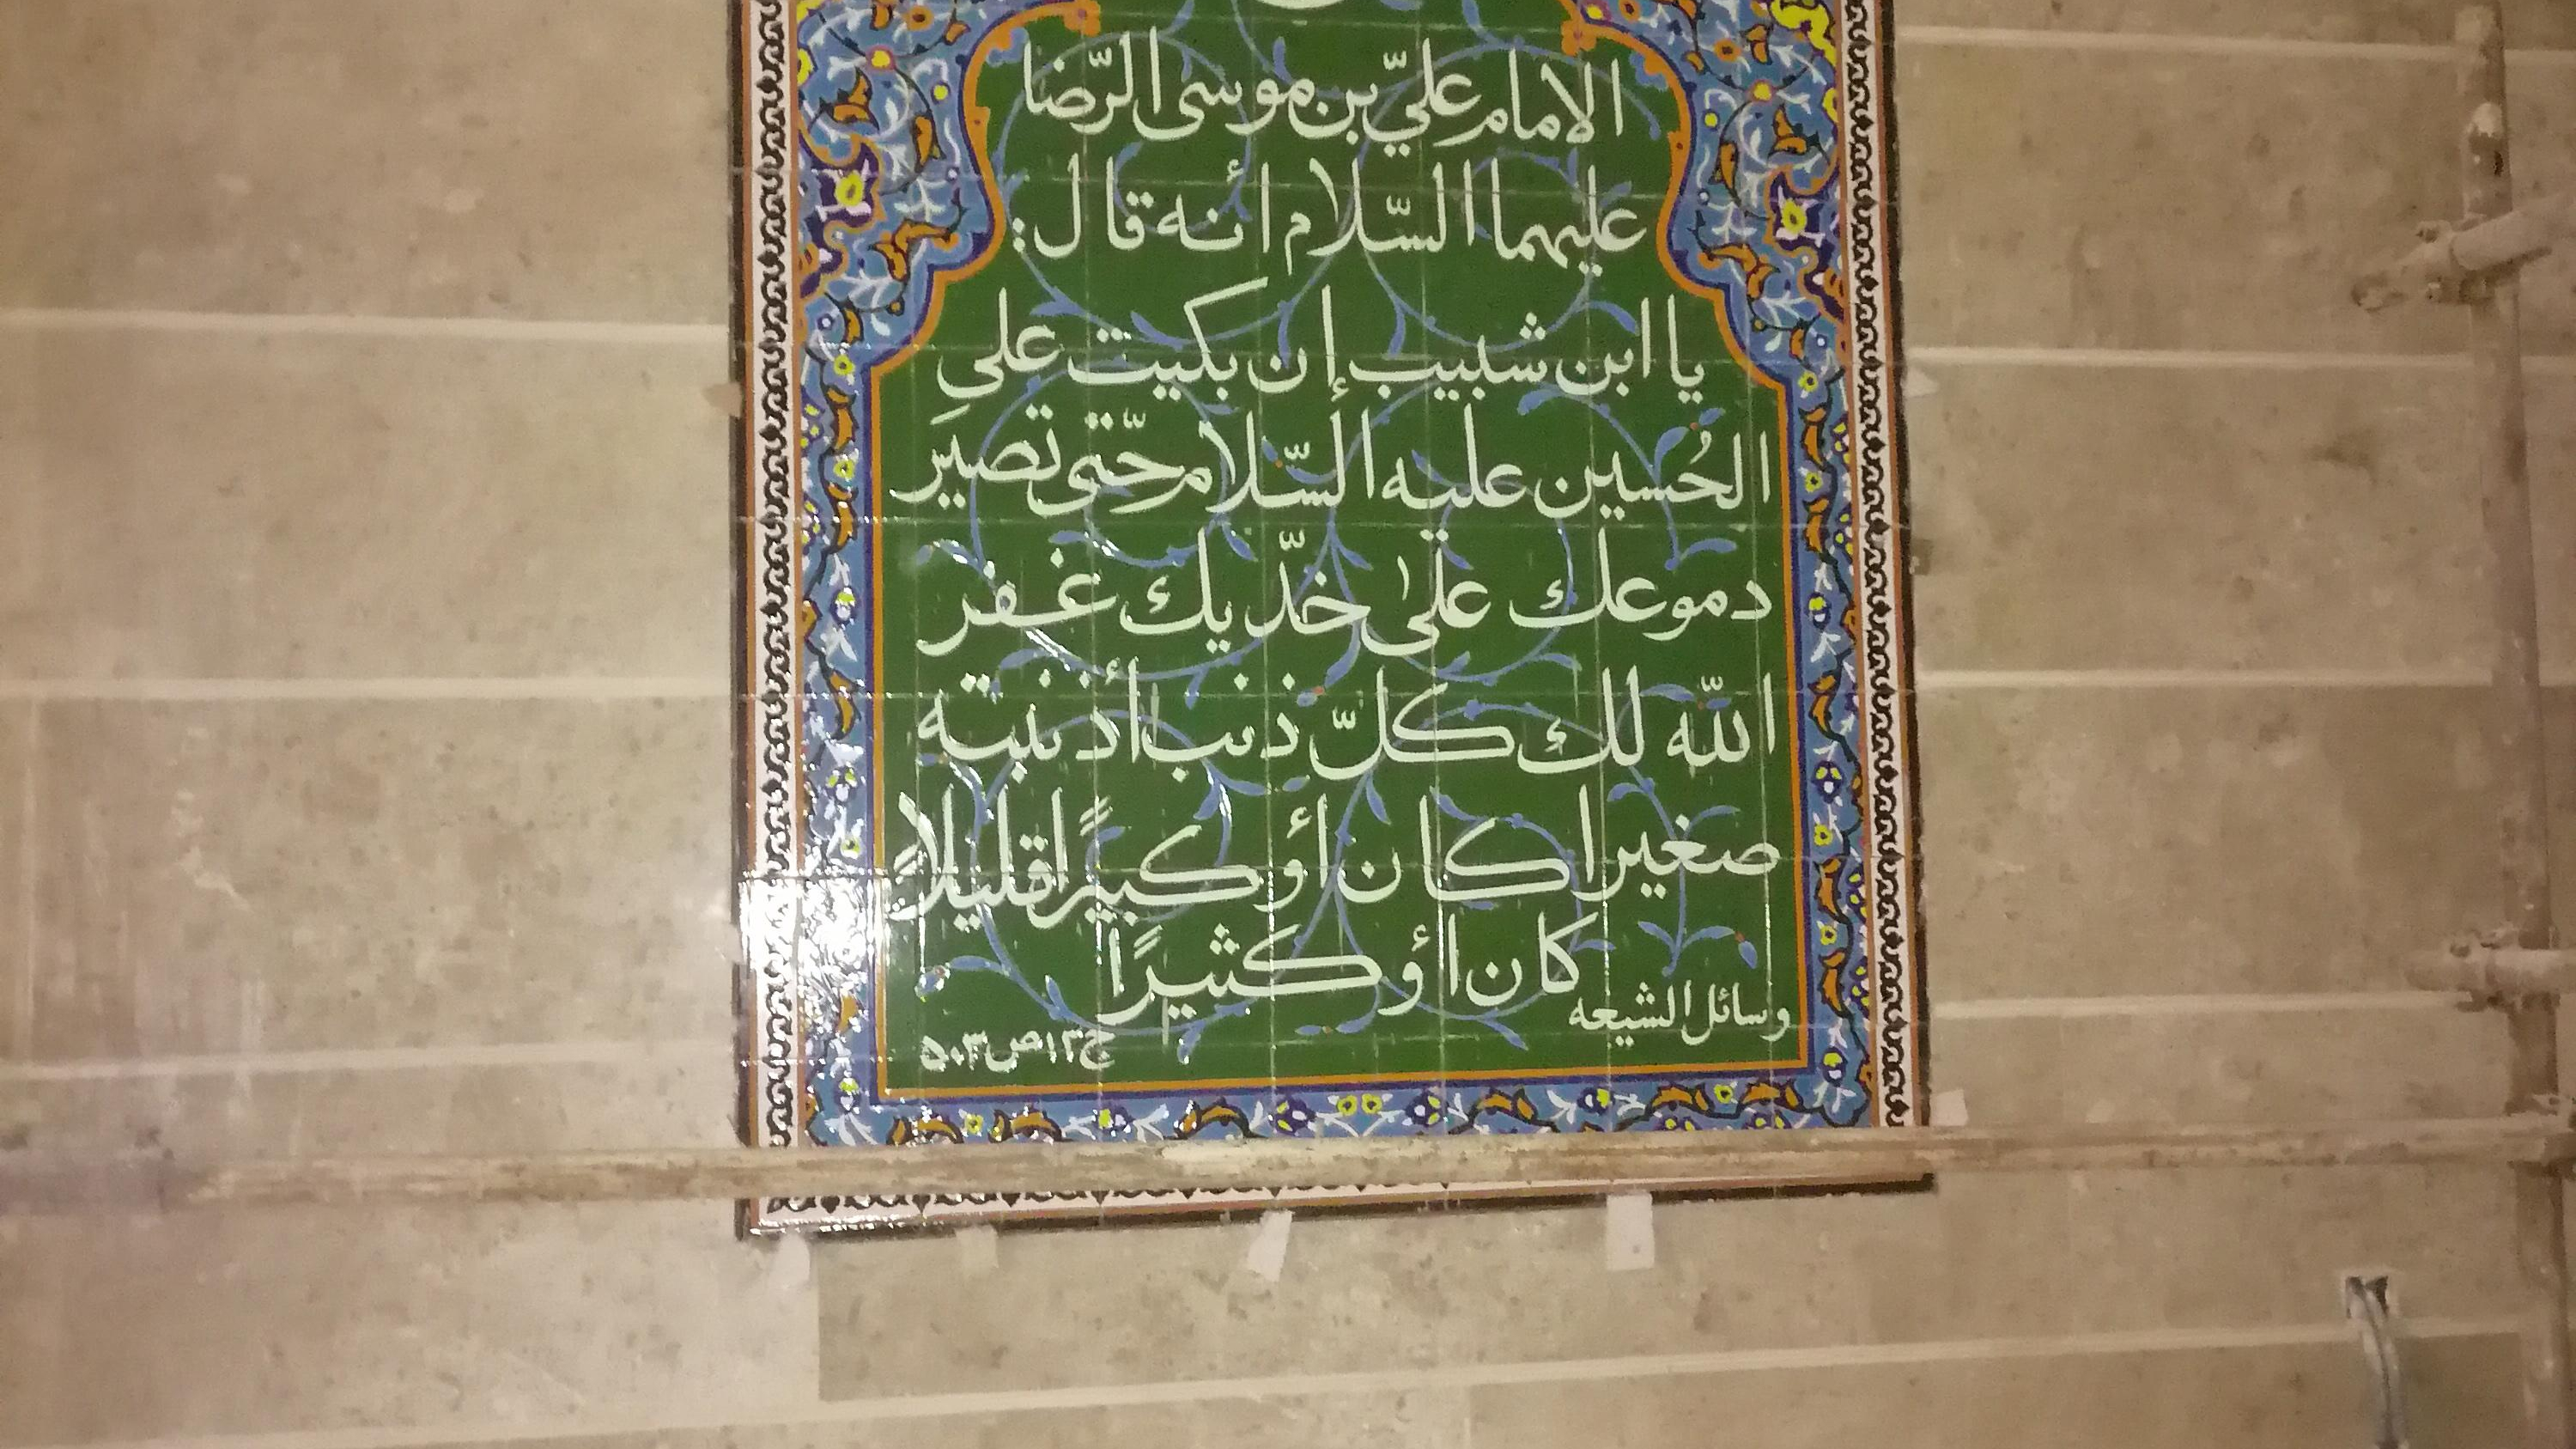 الامام عليّ بن موسى الرّضا
عليهما السّلام أنه قال:
يا ابن شبيب إن بكيت على
الحُسين عليه السّلام حتّى تصير
دموعك على خدّيك غفر
الله لك كلّ ذنب أذنبته
صغيرا كان أو كبيرًا قليلاً
كان أو كثيرًا
وسائل الشيعه
ج١٣ص٥٠٣